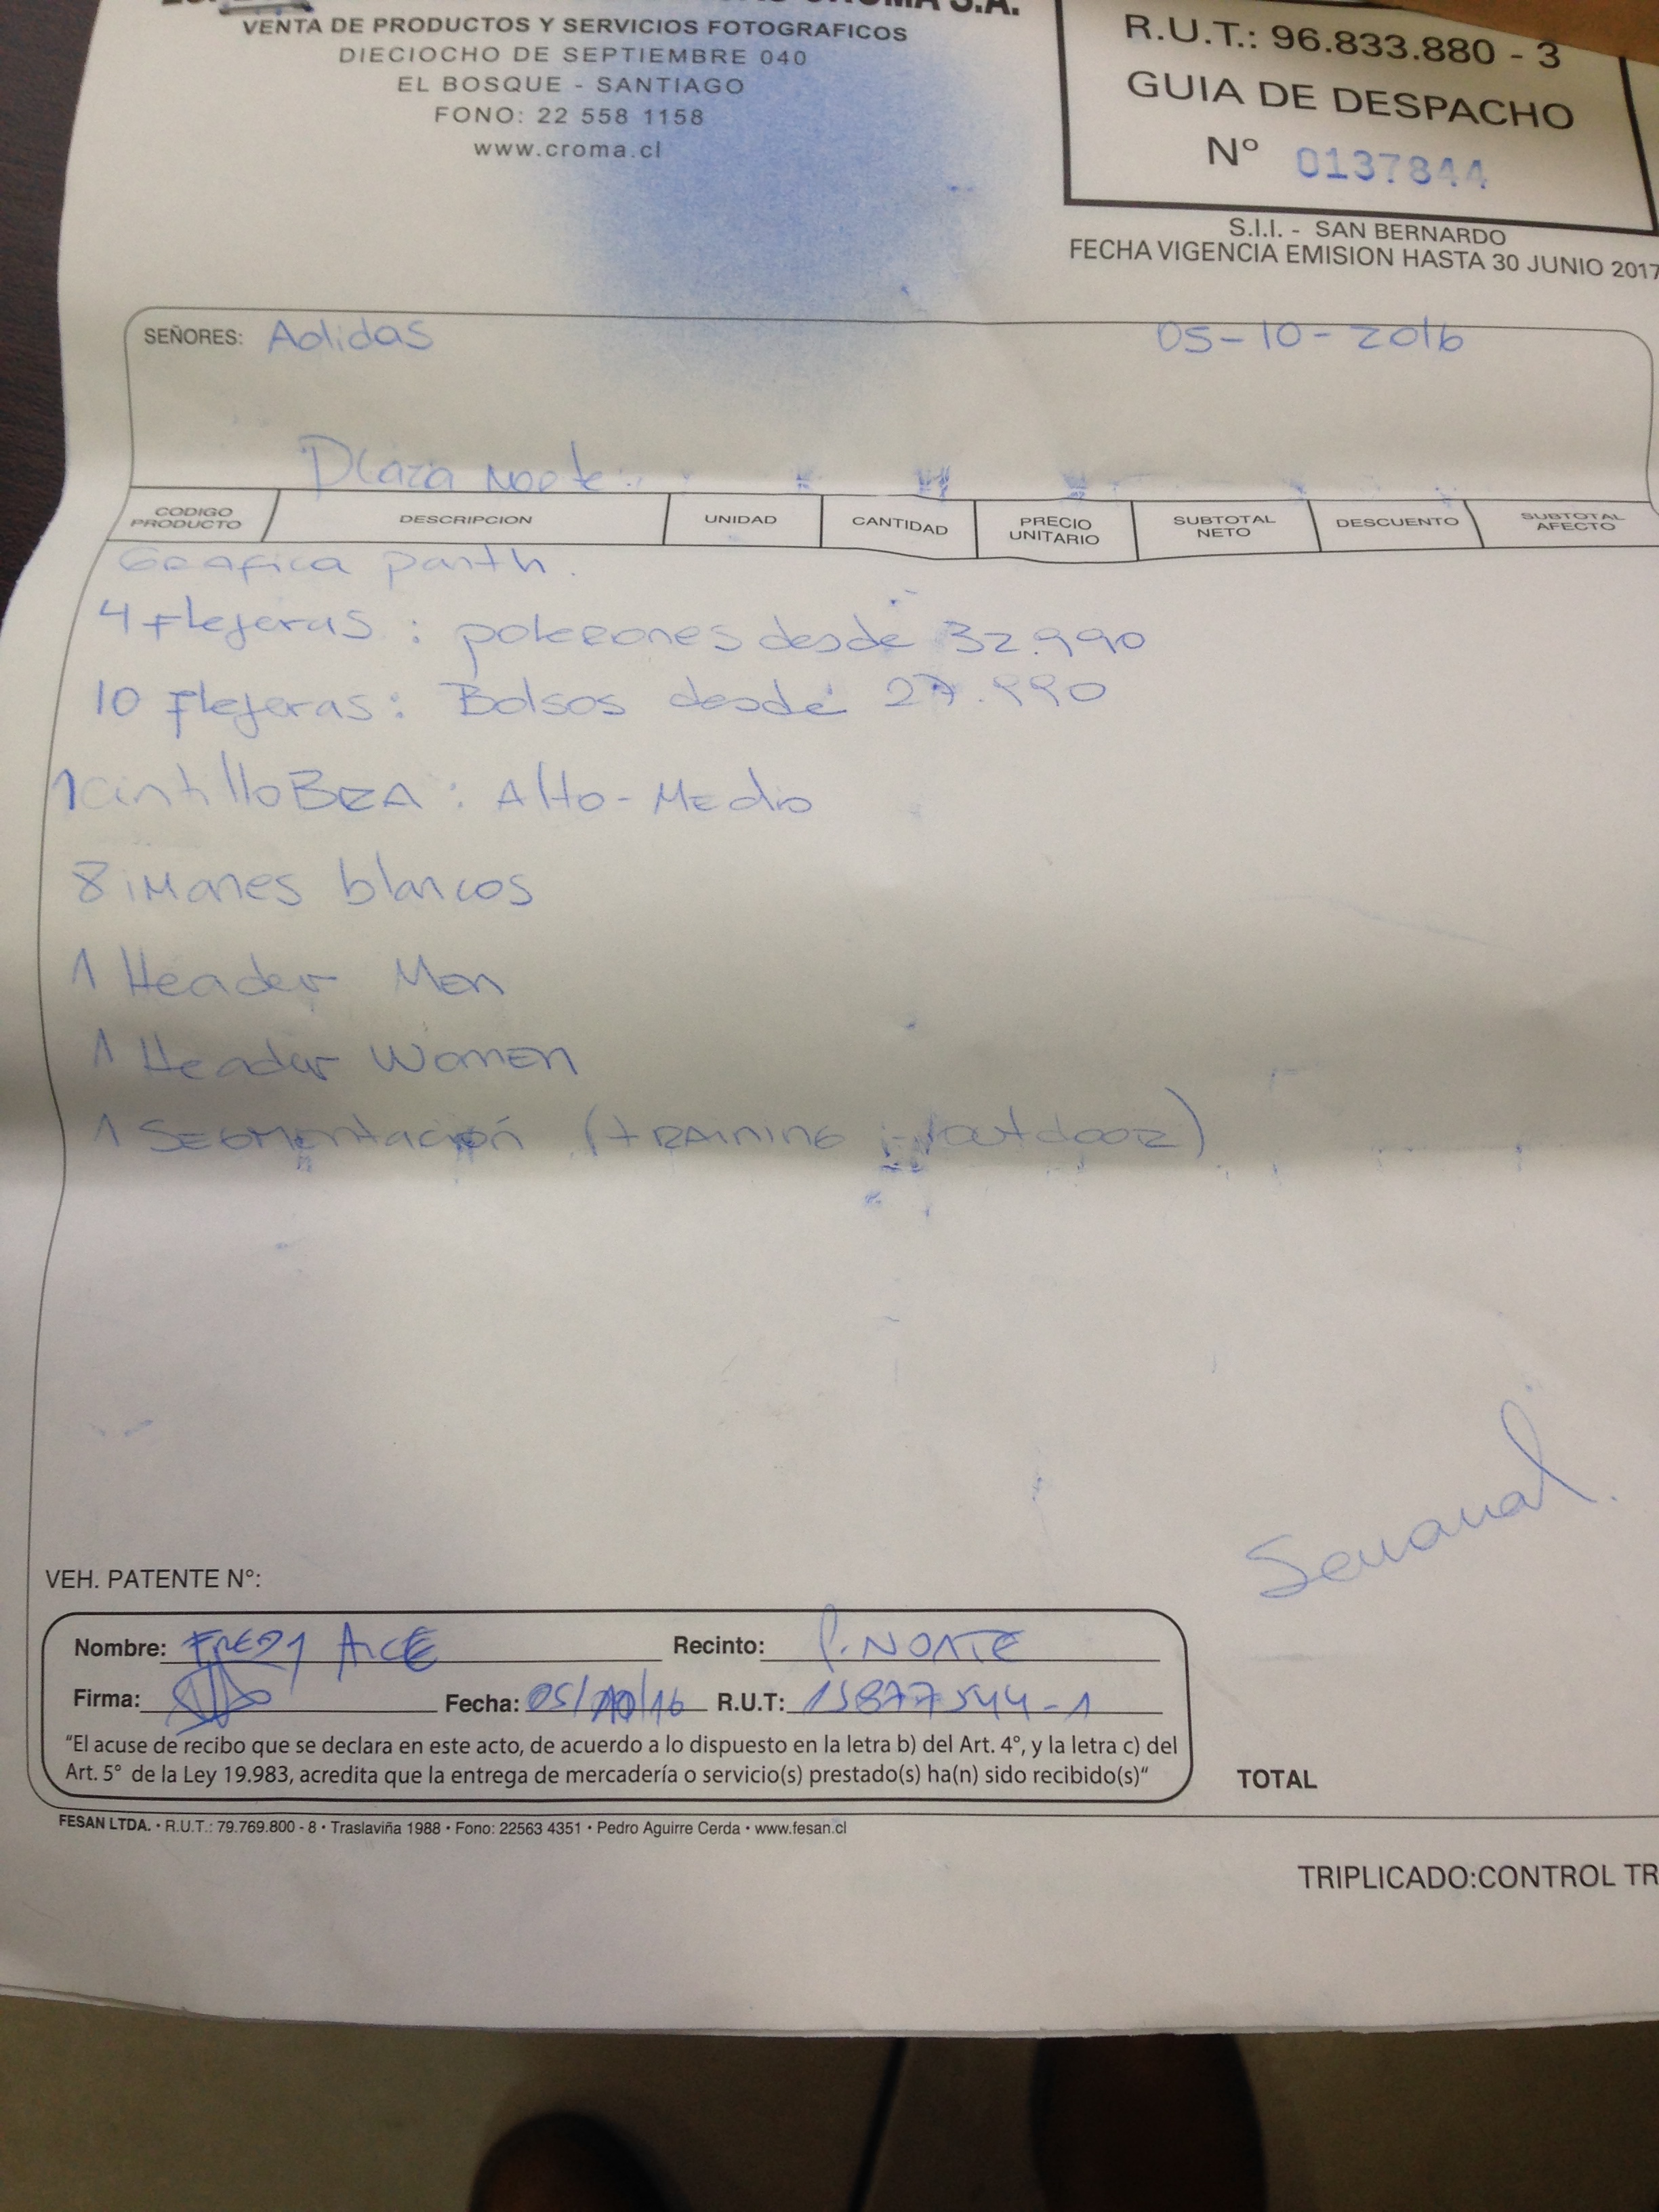 VENTA DE PRODUCTOS Y SERVICIOS FOTOGRAFICOS
DIECIOCHO DE SEPTIEMBRE 040
EL BOSQUE - SANTIAGO
FONO: 22 558 1158
www.croma.cl
R.U.T.: 96.833.880 - 3
GUIA DE DESPACHO
Nº 013784
S.I.I. - SAN BERNARDO
FECHA VIGENCIA EMISION HASTA 30 JUNIO 2017
SEÑORES: Adidas 05-10-2016
Plaza Norte
CODIGO PRODUCTO DESCRIPCION UNIDAD CANTIDAD PRECIO UNITARIO SUBTOTAL NETO DESCUENTO SUBTOTAL AFECTO
Grafica
4 Flejeras: polerones desde 32.990
10 Flejeras: Bolsos desde 27.990
1 cintillo BRA: Alto-Medio
8 imanes blancos
1 Header Men
1 Header Women
1 Segmentación (training / outdoor)
VEH. PATENTE Nº:
Nombre: Fredy Recinto: P. Norte
Firma: Fecha: 05/10/16 R.U.T:
"El acuse de recibo que se declara en este acto, de acuerdo a lo dispuesto en la letra b) del Art. 4º, y la letra c) del
Art. 5º de la Ley 19.983, acredita que la entrega de mercadería o servicio(s) prestado(s) ha(n) sido recibido(s)"
TOTAL
FESAN LTDA. • R.U.T.: 79.769.800 - 8 • Traslaviña 1988 • Fono: 22563 4351 • Pedro Aguirre Cerda • www.fesan.cl
TRIPLICADO:CONTROL TR